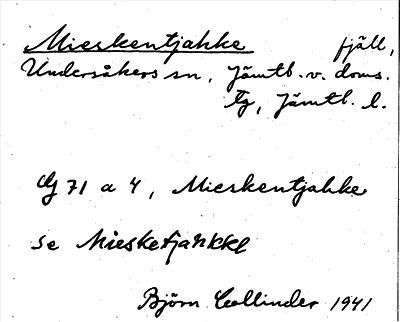 Mieskentjahke fjäll,
Undersåkers sn, Jämtl. v. doms.
tg, Jämtl. l.
Cg 71 a 4, Mieskentjahke
se Miesketjahkke
Björn Collinder 1941